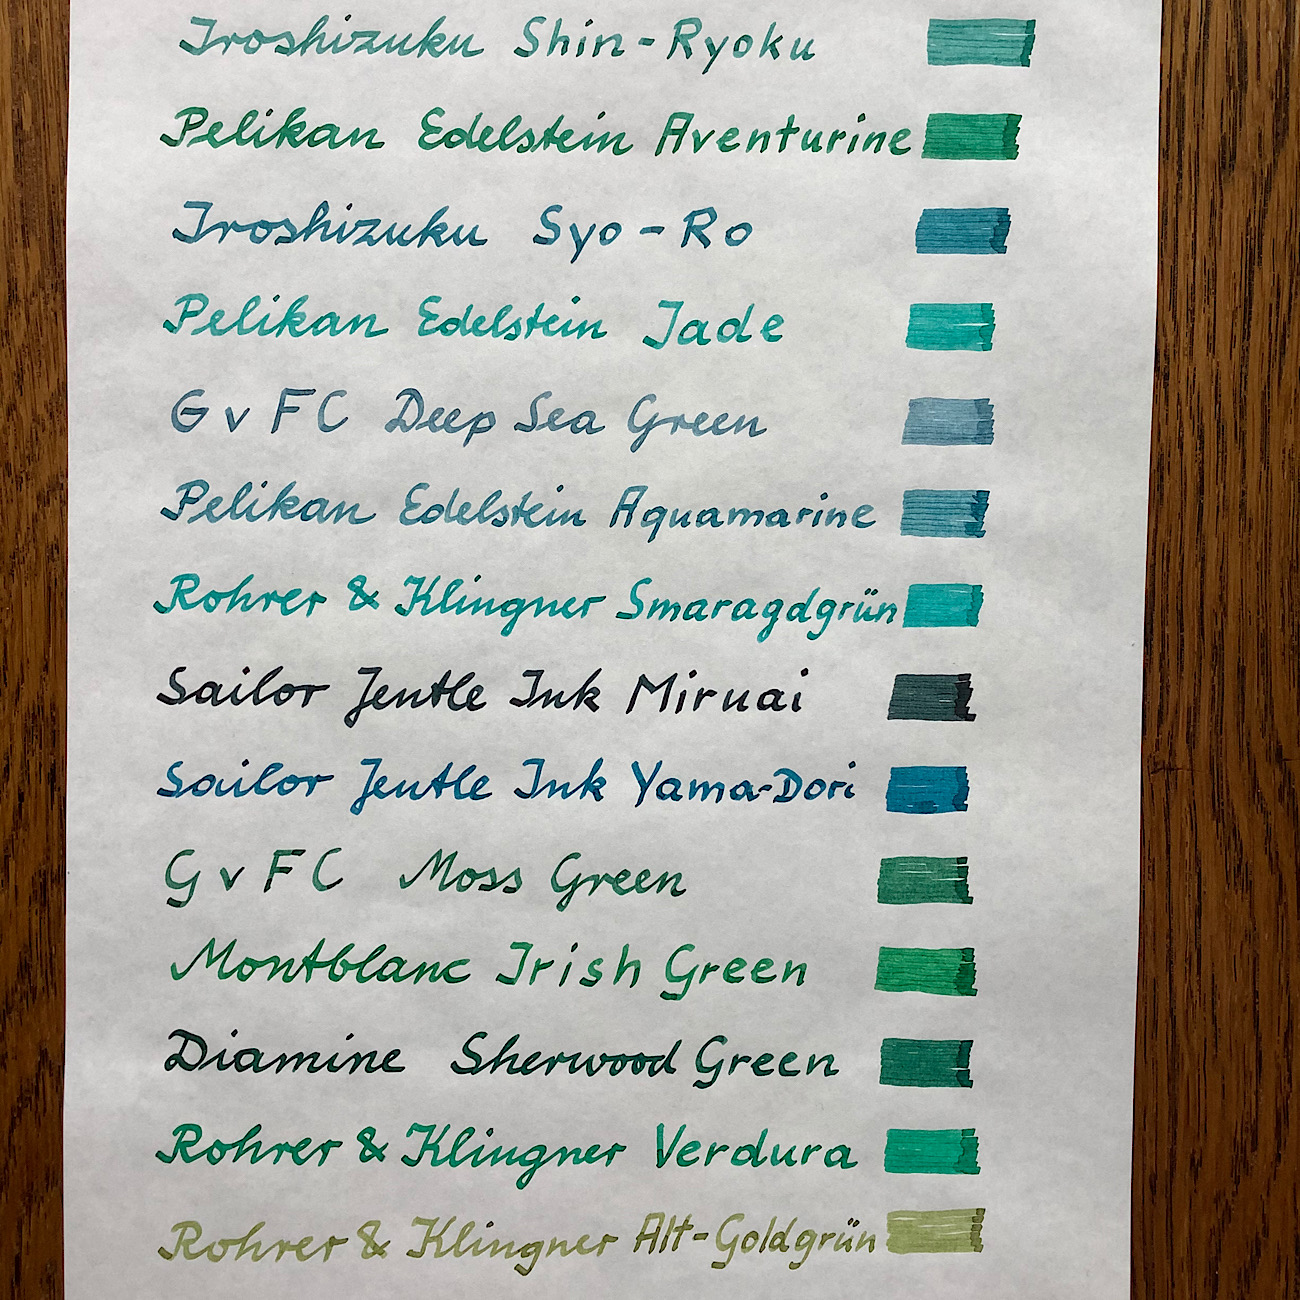 Iroshizuku Shin-Ryoku
Pelikan Edelstein Aventurine
Iroshizuku Syo-Ro
Pelikan Edelstein Jade
GvFC Deep Sea Green
Pelikan Edelstein Aquamarine
Rohrer & Klingner Smaragdgrün
Sailor Jentle Ink Miruai
Sailor Jentle Ink Yama-Dori
GvFC Moss Green
Montblanc Irish Green
Diamine Sherwood Green
Rohrer & Klingner Verdura
Rohrer & Klingner Alt-Goldgrün